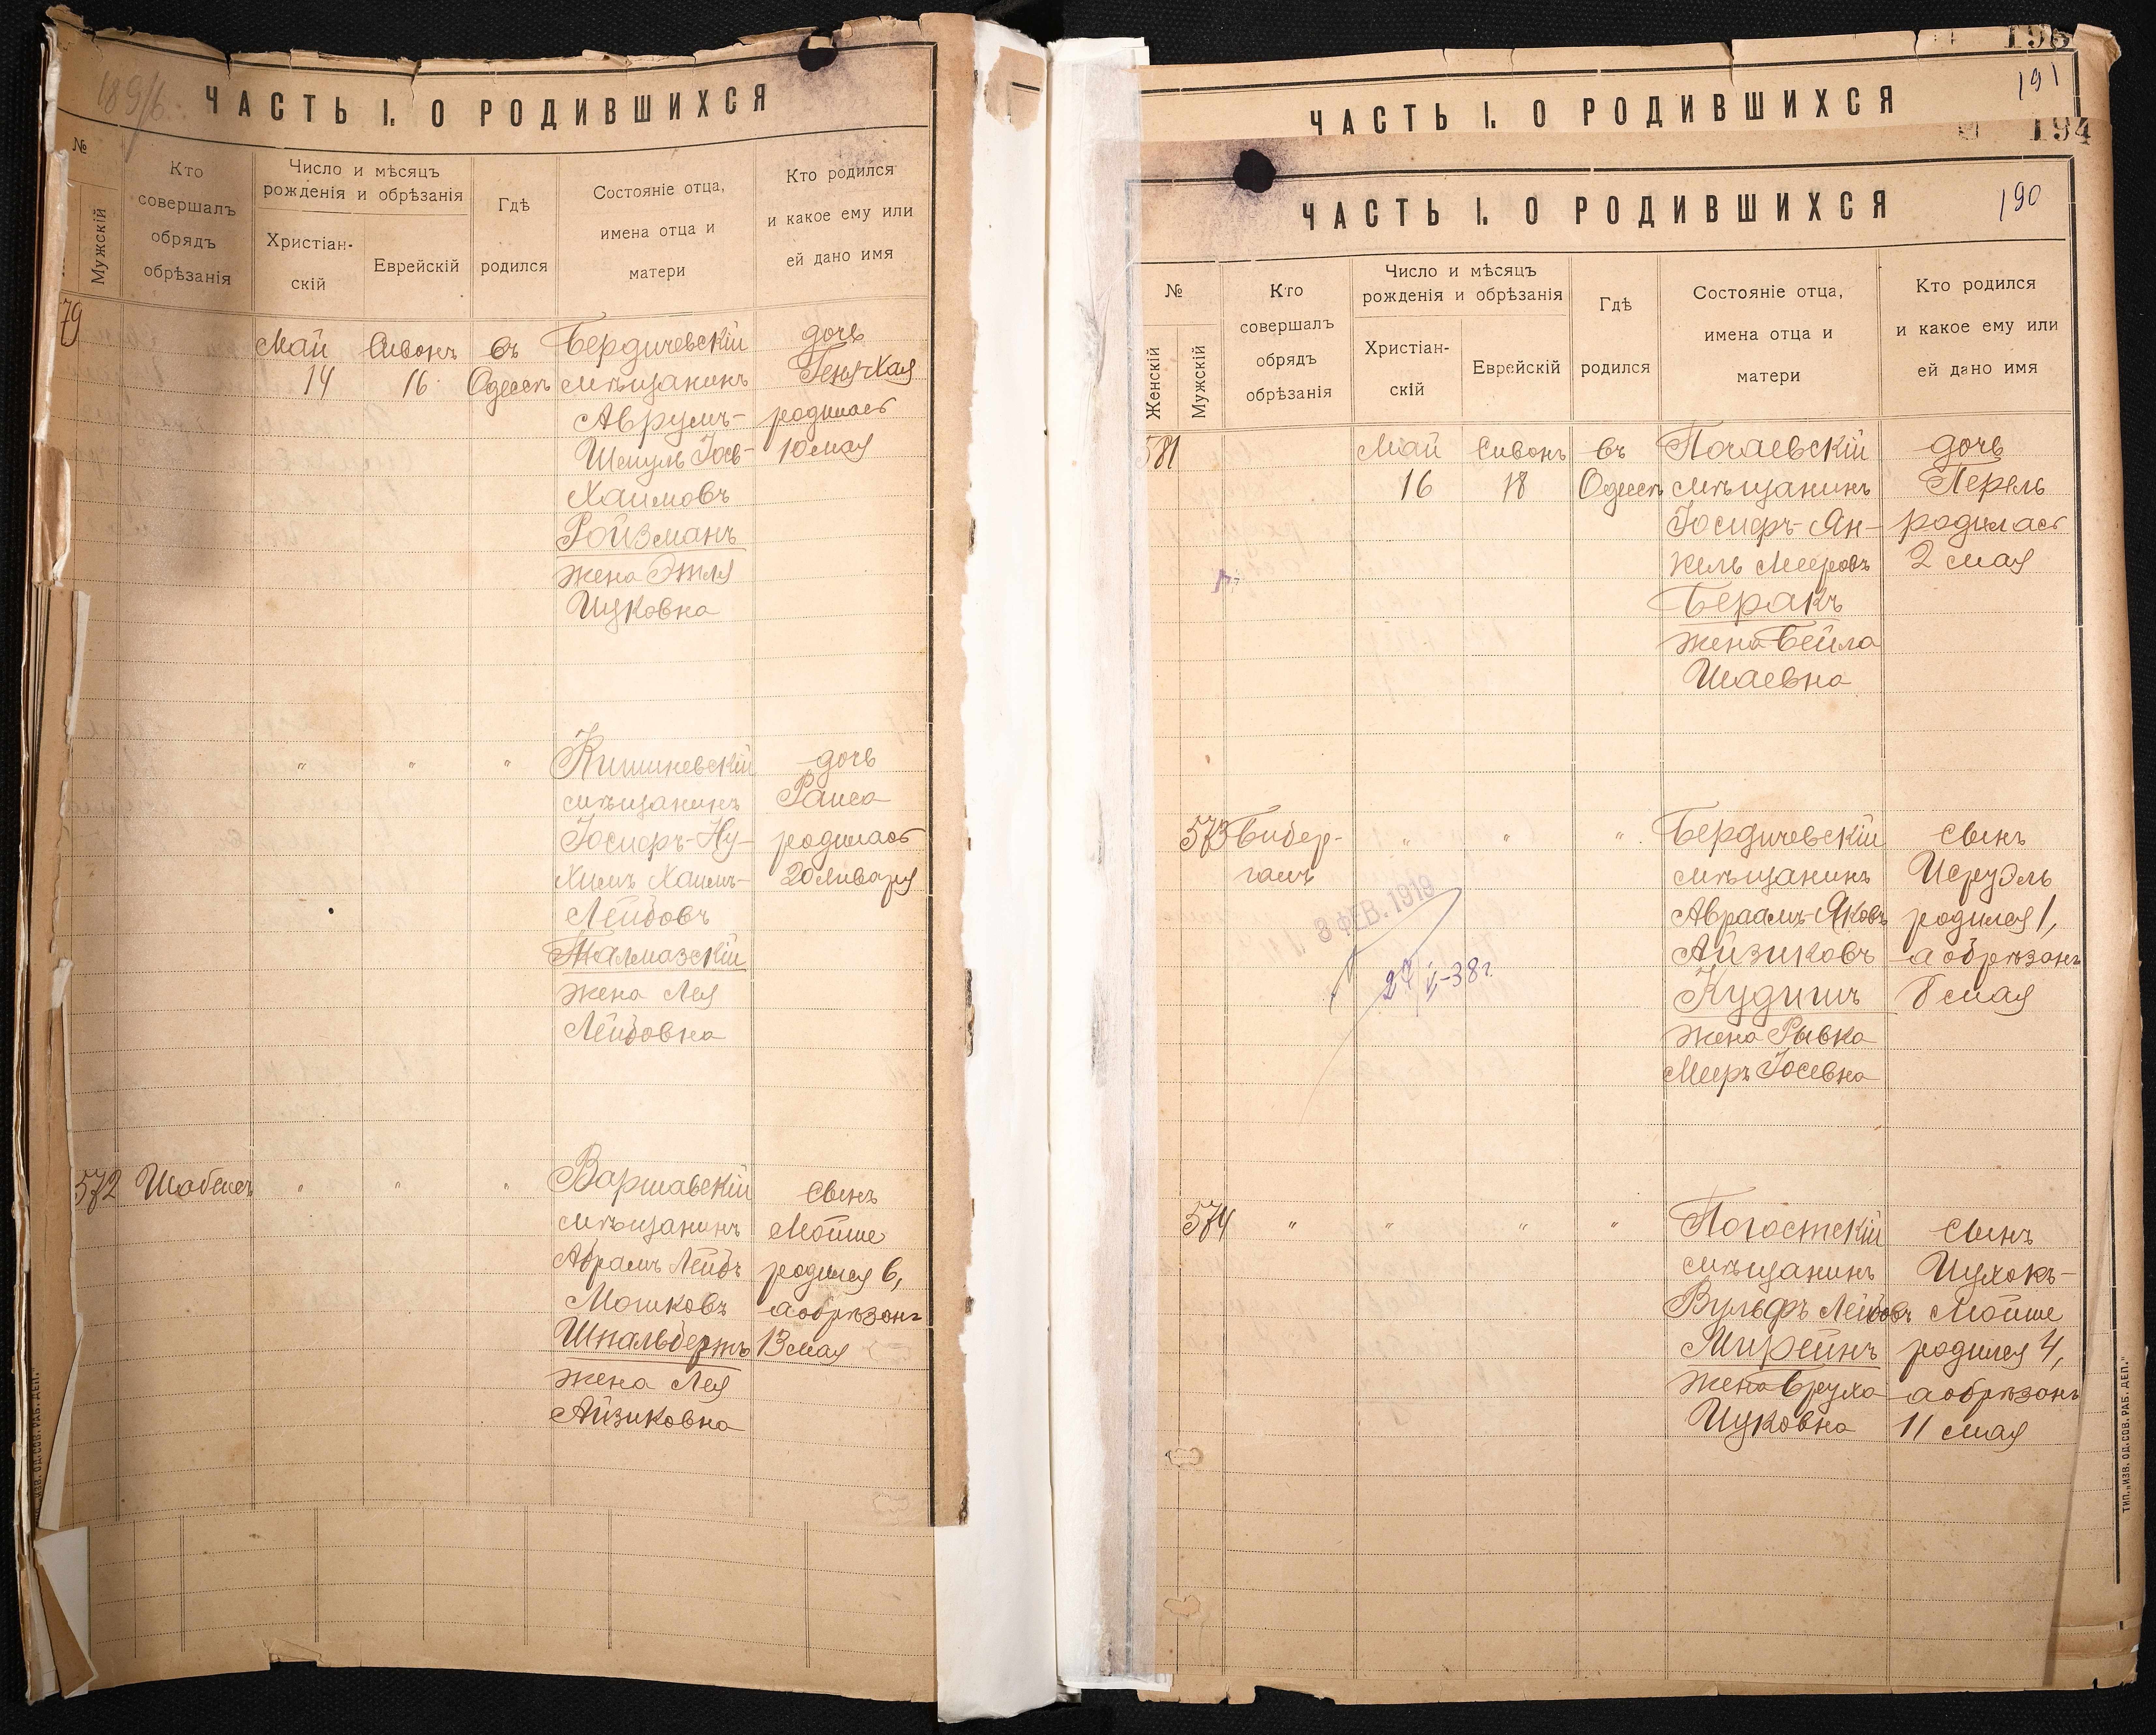 1896 г.
ЧАСТЬ I. О РОДИВШИХСЯ
№
Мужскій
Кто
совершалъ
обрядъ
обрѣзанія
Число и мѣсяцъ
рожденія и обрѣзанія
Христіан-
скій
Еврейскій
Гдѣ
родился
Состояніе отца,
имена отца и
матери
Кто родился
и какое ему или
ей дано имя
79
Май
14
Сивонъ
16
въ
Одессѣ
Бердичевскій
мѣщанинъ
Аврумъ-
Шмуль Іось-
Хаимовъ
Ройзманъ
жена Этля
Ицковна
дочь
Геня-Хая
родилась
10 мая
" " "
Кишиневскій
мѣщанинъ
Іосифъ-Ну-
химъ Хаимъ-
Лейбовъ
Талмазскій
жена Лея
Лейбовна
дочь
Раиса
родилась
20 Января
572
" " "
Варшавскій
мѣщанинъ
Абрамъ Лейбъ
Мошковъ
Шнальбертъ
жена Лея
Айзиковна
сынъ
Мойше
родился 6,
а обрѣзанъ
13 мая
ТИП. „ИЗВ. ОД. СОВ. РАБ. ДЕП.“
191
ЧАСТЬ I. О РОДИВШИХСЯ
194
190
ЧАСТЬ I. О РОДИВШИХСЯ
№
Женскій
Мужскій
Кто
совершалъ
обрядъ
обрѣзанія
Число и мѣсяцъ
рожденія и обрѣзанія
Христіан-
скій
Еврейскій
Гдѣ
родился
Состояніе отца,
имена отца и
матери
Кто родился
и какое ему или
ей дано имя
581
Май
16
Сивонъ
18
въ
Одессѣ
Почаевскій
мѣщанинъ
Іосифъ-Ян-
кель Мееровъ
Беракъ
жена Бейла
Шаевна
дочь
Перель
родилась
2 мая
573
Бибер-
галъ
" " "
8 ФЕВ. 1919
Бердичевскій
мѣщанинъ
Авраамъ-Яковъ
Айзиковъ
Кудишъ
жена Рывка
Меръ Іосевна
сынъ
Исруэль
родился 1,
а обрѣзанъ
8 мая
574
" " " "
Погостскій
мѣщанинъ
Вульфъ Лейбовъ
Мирейнъ
жена Бруха
Ицковна
сынъ
Ицхокъ-
Мойше
родился 4,
а обрѣзанъ
11 мая
ТИП. „ИЗВ. ОД. СОВ. РАБ. ДЕП.“